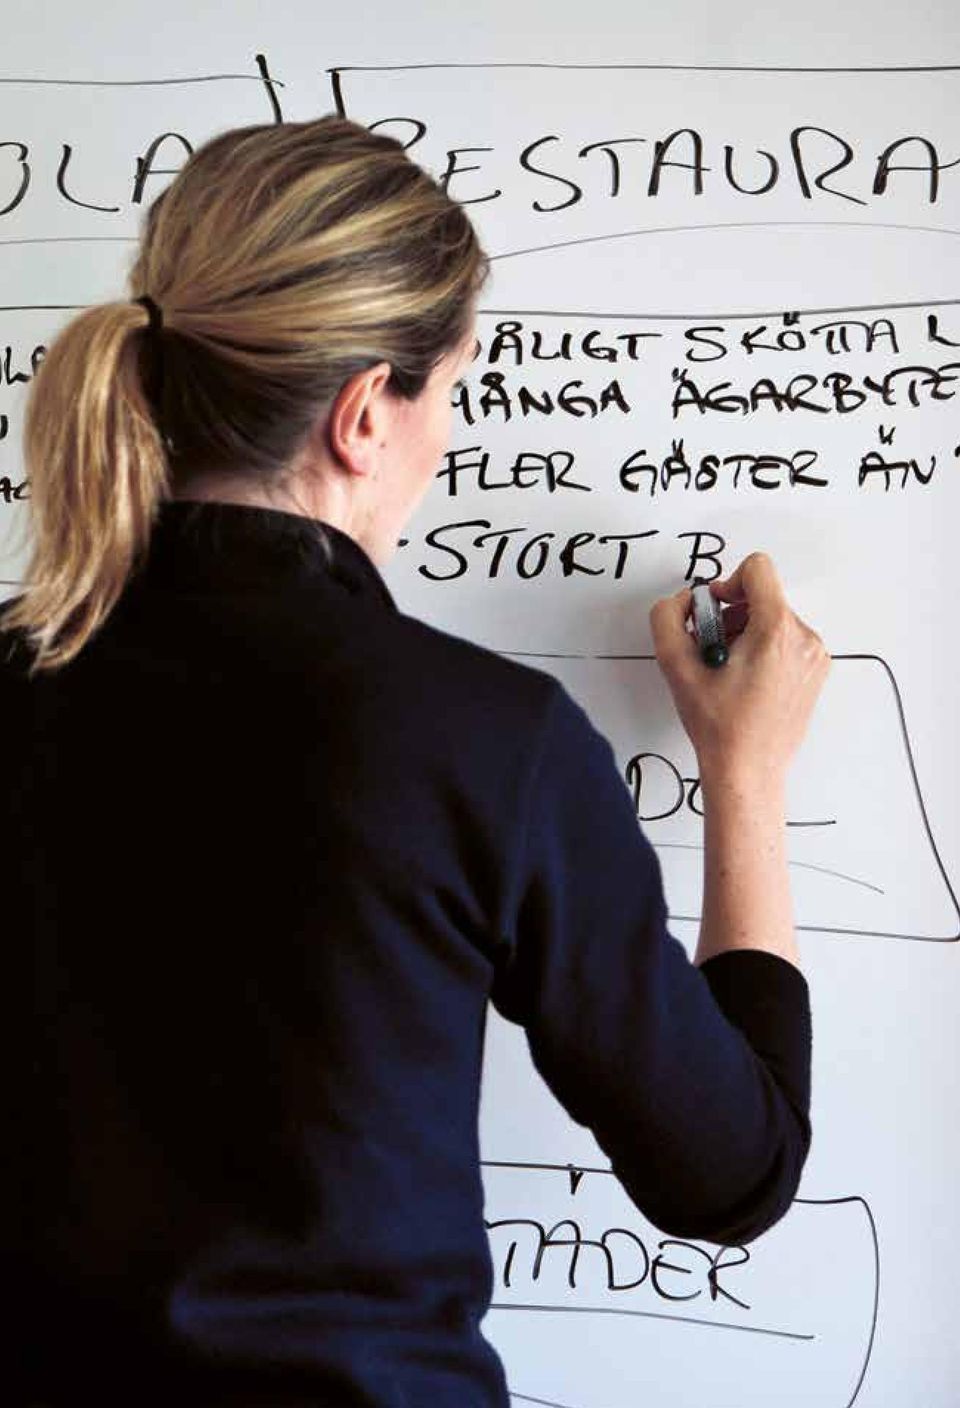 OLA RESTAURA
ÅLIGT SKÖTTA L
MÅNGA ÄGARBYTE
FLER GÄSTER ÄN
·STORT B
TÄDER